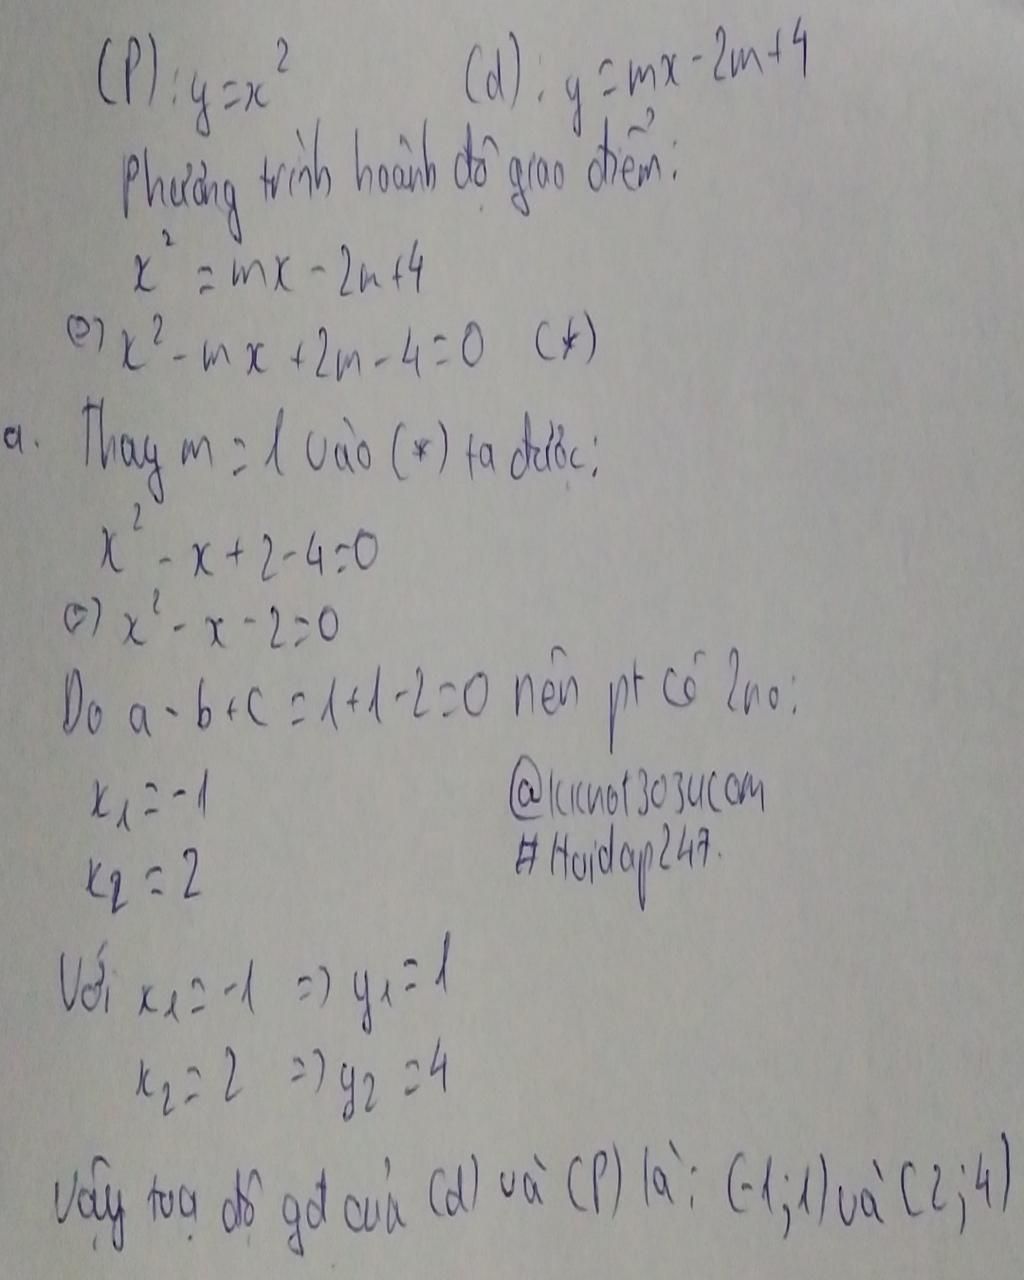 (P): y = x² (d): y = mx - 2m + 4
Phương trình hoành độ giao điểm:
x² = mx - 2m + 4
<=> x² - mx + 2m - 4 = 0 (*)
a. Thay m = 1 vào (*) ta được:
x² - x + 2 - 4 = 0
<=> x² - x - 2 = 0
Do a - b + c = 1 + 1 - 2 = 0 nên pt có 2 no:
x₁ = -1
x₂ = 2
#Hoidap247.
Với x₁ = -1 => y₁ = 1
x₂ = 2 => y₂ = 4
Vậy toạ độ gđ của (d) và (P) là: (-1; 1) và (2; 4)